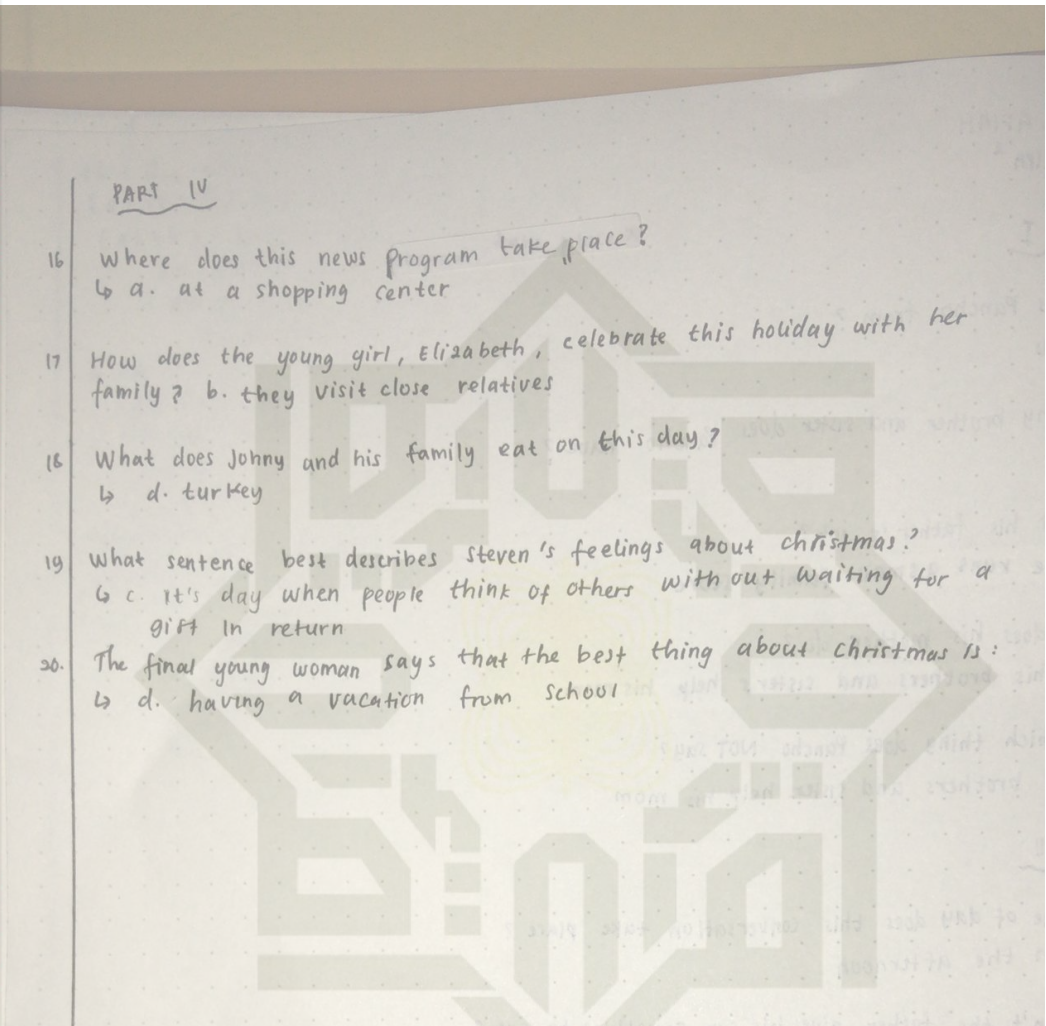 PART IV
16 Where does this news program take place?
↳ a. at a shopping center
17 How does the young girl, Elizabeth, celebrate this holiday with her
family? b. they visit close relatives
18 What does Johny and his family eat on this day?
↳ d. turkey
19 What sentence best describes Steven's feelings about christmas?
↳ c. It's day when people think of others with out waiting for a
gift In return
20. The final young woman says that the best thing about christmas is:
↳ d. having a vacation from school